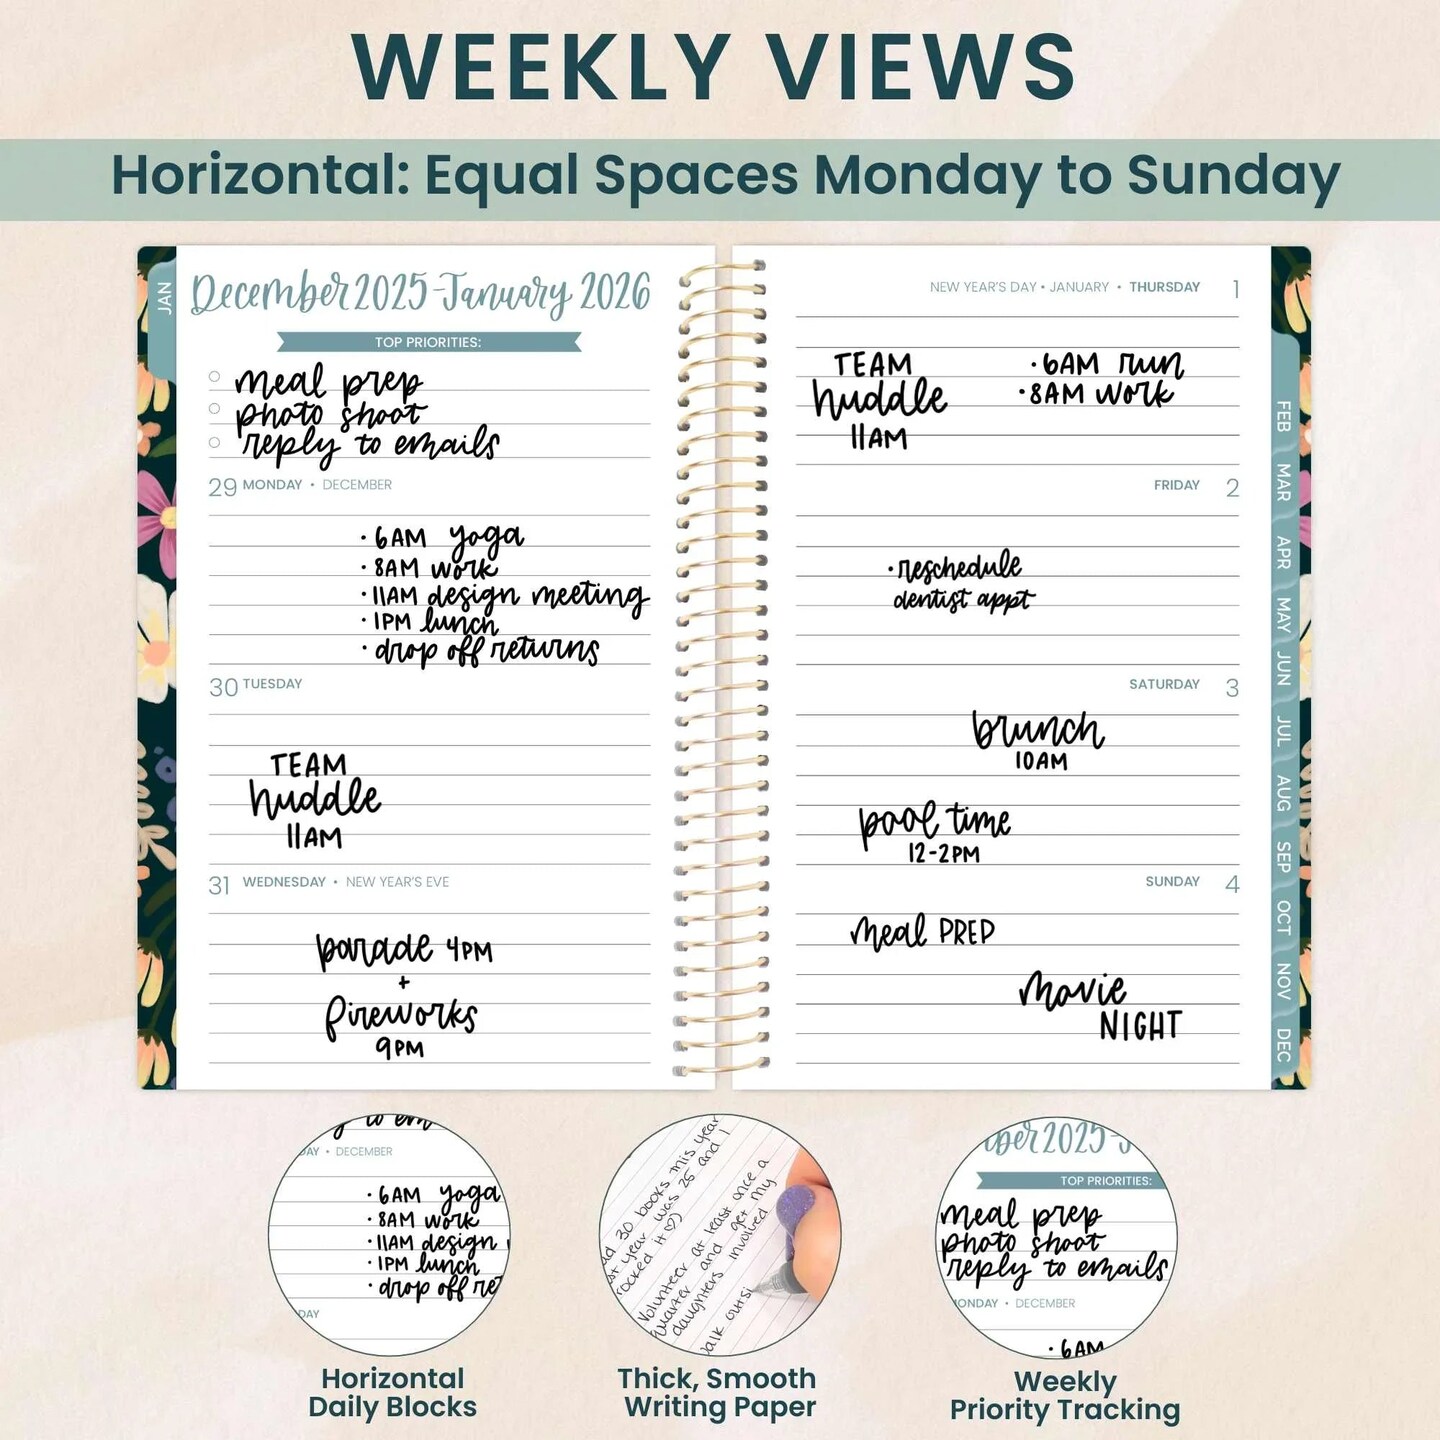 WEEKLY VIEWS
Horizontal: Equal Spaces Monday to Sunday
JAN
December 2025-January 2026
TOP PRIORITIES:
meal prep
photo shoot
reply to emails
29 MONDAY • DECEMBER
• 6AM yoga
• 8AM work
• 11AM design meeting
• 1PM lunch
• drop off returns
30 TUESDAY
TEAM
huddle
11AM
31 WEDNESDAY • NEW YEAR'S EVE
parade 4PM
+
fireworks
9PM
NEW YEAR'S DAY • JANUARY • THURSDAY 1
TEAM
huddle
11AM
• 6AM run
• 8AM work
FRIDAY 2
• reschedule
dentist appt
SATURDAY 3
brunch
10AM
pool time
12-2PM
SUNDAY 4
meal PREP
movie
NIGHT
FEB
MAR
APR
MAY
JUN
JUL
AUG
SEP
OCT
NOV
DEC
to em
DAY • DECEMBER
• 6AM yoga
• 8AM work
• 11AM design
• 1PM lunch
• drop off ret
DAY
Horizontal
Daily Blocks
30 books this year
year was 25 and I
rocked it ♡))
Volunteer at least once a
quarter and get my
daughters involved
Thick, Smooth
Writing Paper
ber 2025-J
TOP PRIORITIES:
meal prep
photo shoot
reply to emails
MONDAY • DECEMBER
• 6AM
Weekly
Priority Tracking